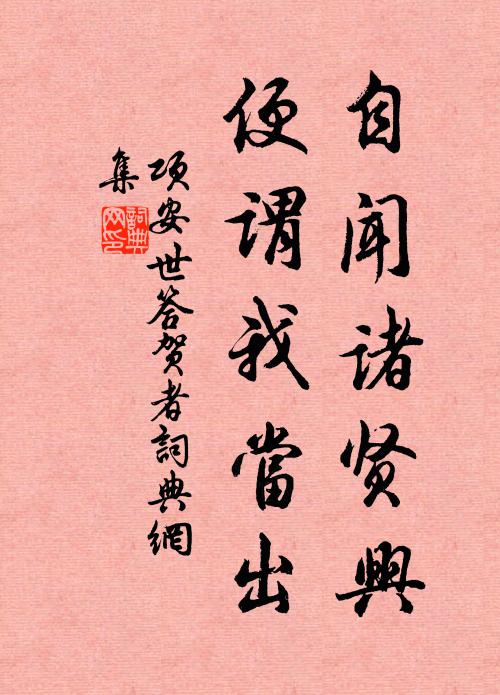 自闻诸贤興
便谓我當出
项安世答贺者詞典網
集
詞典
网印